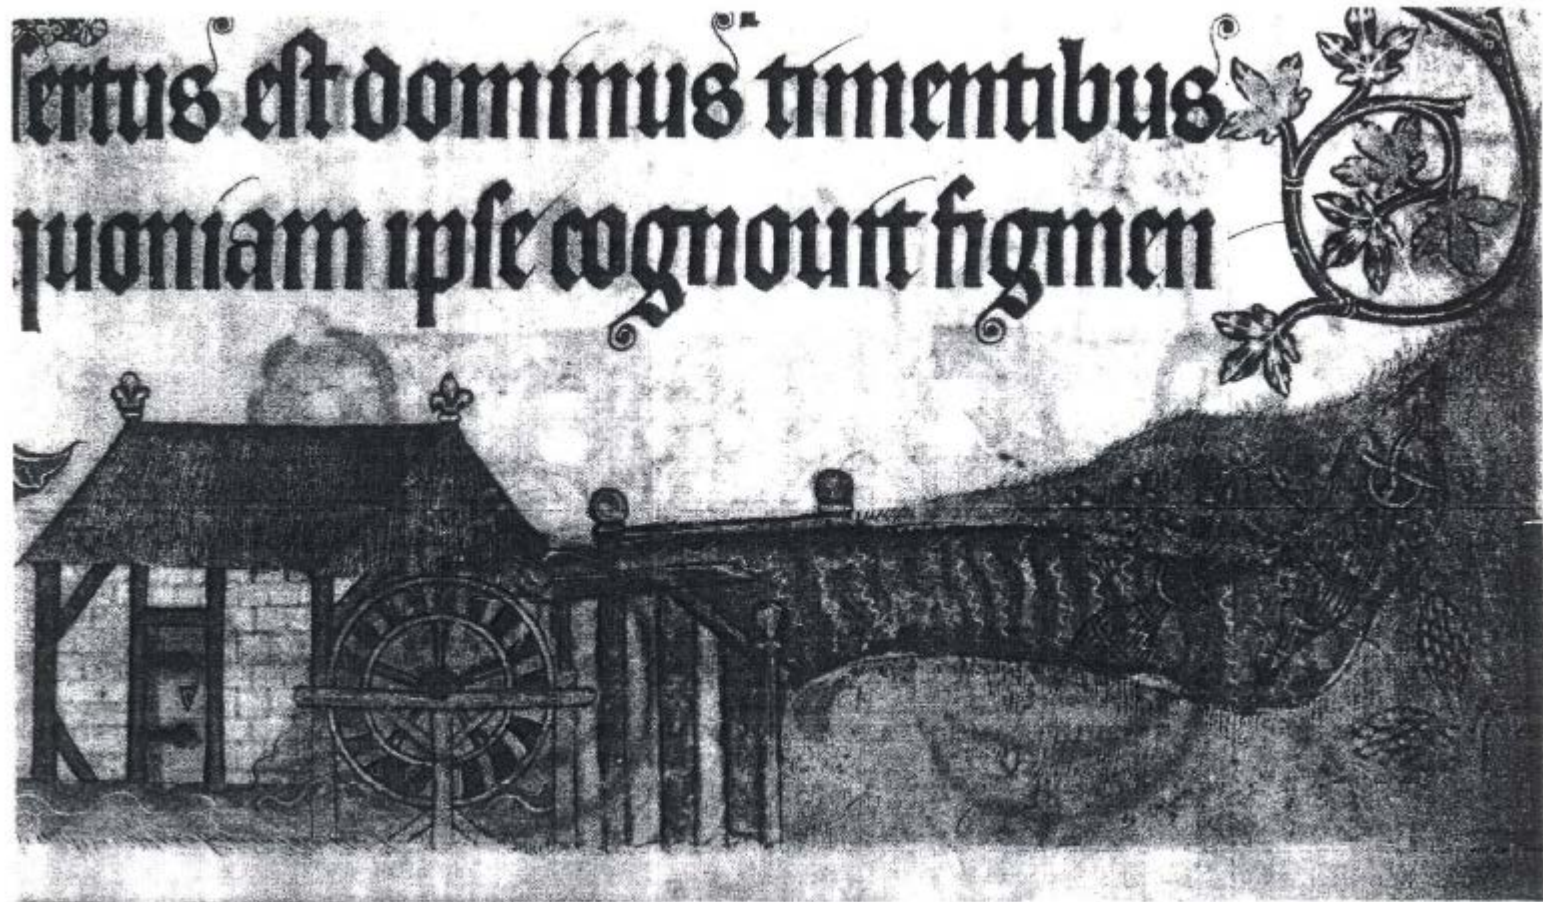 sertus est dominus timentibus
quoniam ipse cognouit figmen